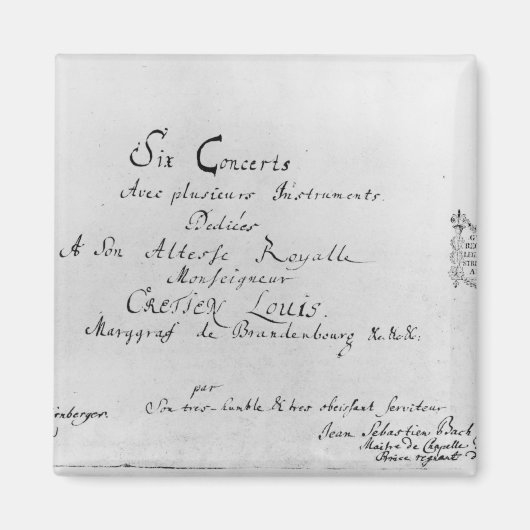 Six Concerts
Avec plusieurs Instruments.
Dediées
A Son Altesse Royalle
Monseigneur
CRETIEN LOUIS.
Marggraf de Brandenbourg &c.&c.&c:
par
Son tres-humble & tres obeissant serviteur
Jean Sebastien Bach
Maitre de Chapelle
Prince regnant d
rnberger.